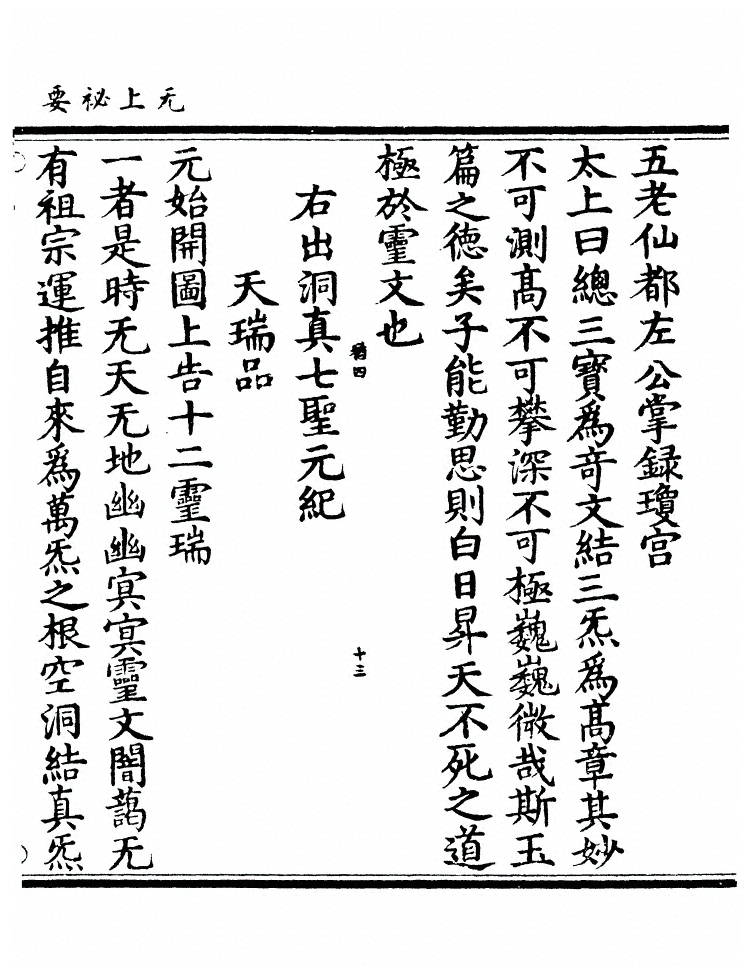 无上祕要
五老仙都左公掌録瓊宮
太上曰總三寶爲竒文結三炁爲髙章其妙
不可測髙不可攀深不可極巍巍微哉斯玉
篇之德矣子能勤思則白日昇天不死之道
極於靈文也
右出洞真七聖元紀
天瑞品
元始開圖上告十二靈瑞
一者是時无天无地幽幽冥冥靈文闇藹无
有祖宗運推自來爲萬炁之根空洞結真炁
十三